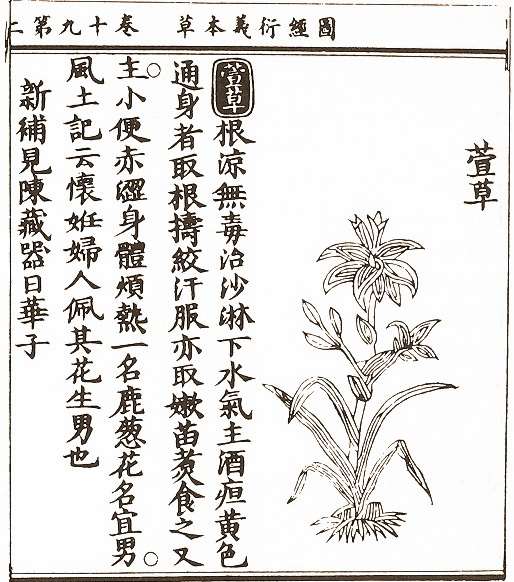 圖經衍義本草 卷十九第二
萱草
萱草根涼無毒治沙淋下水氣主酒疸黃色
通身者取根擣絞汗服亦取嫩苗煑食之又
主小便赤澀身體煩熱一名鹿葱花名宜男
風土記云懷姙婦人佩其花生男也
新補見陳藏器日華子